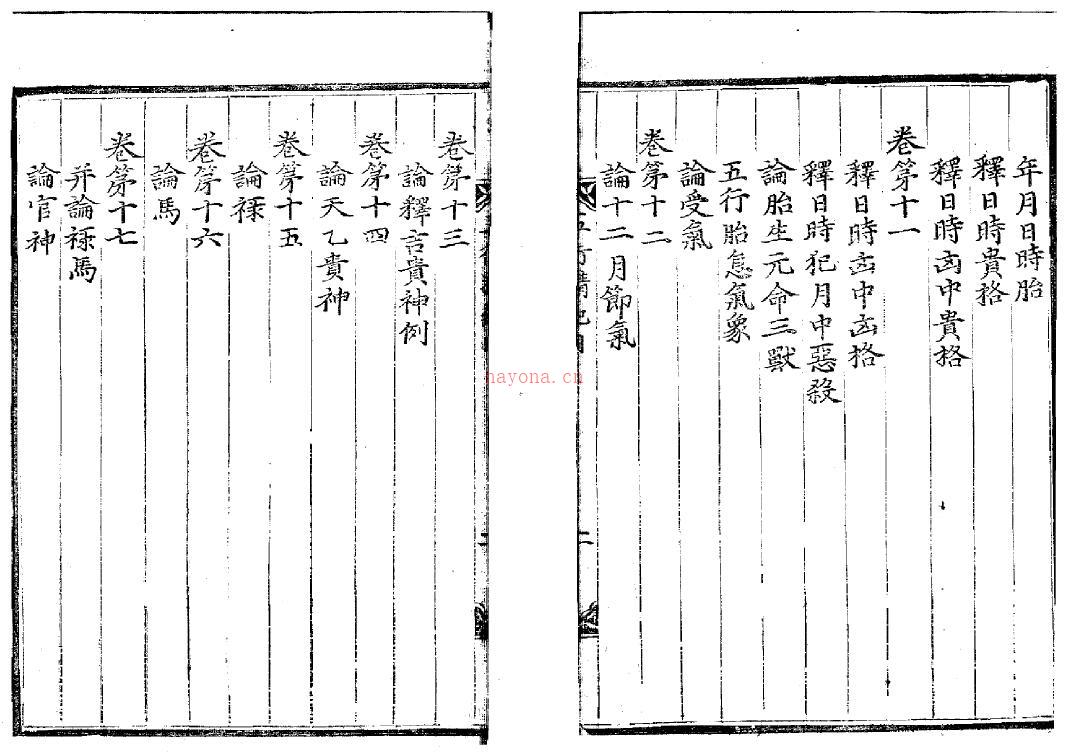 年月日時胎
釋日時貴格
釋日時凶中貴格
卷第十一
釋日時凶中凶格
釋日時犯月中惡殺
論胎生元命三獸
五行胎忌氣象
論受氣
卷第十二
論十二月節氣
卷第十三
論釋吉貴神例
卷第十四
論天乙貴神
卷第十五
論祿
卷第十六
論馬
卷第十七
并論祿馬
論官神
nayona.cn